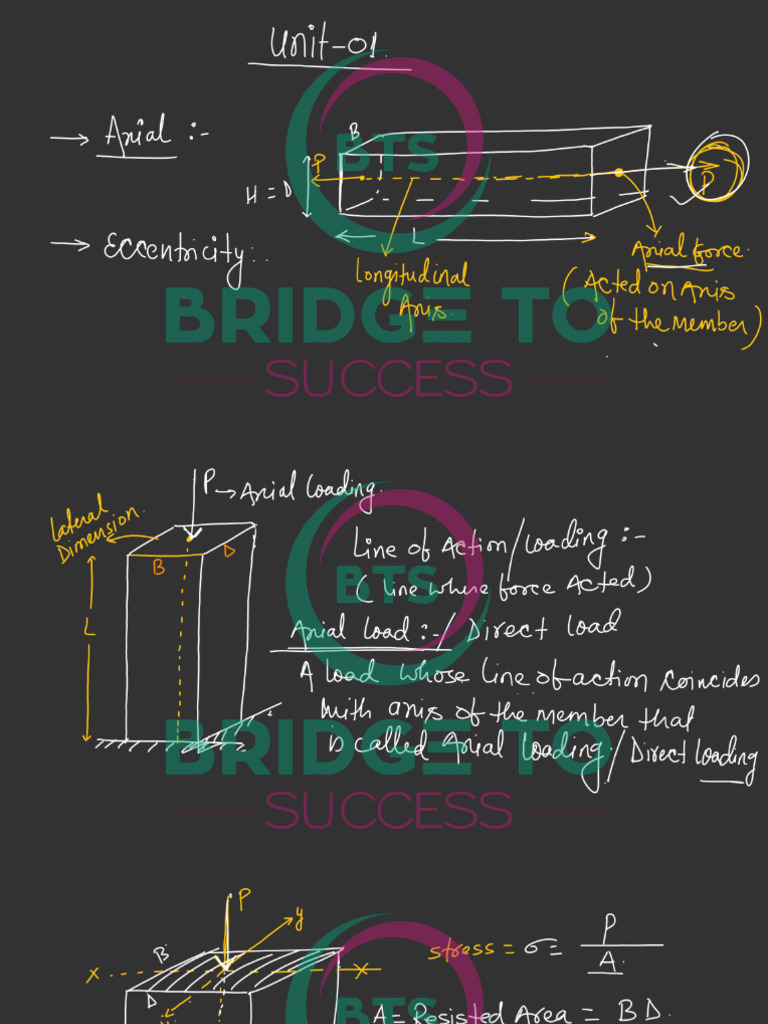 Unit-01.
→ Axial :-
B
P
H = D
P
L
→ Eccentricity:.
Longitudinal
Axis.
Axial force.
(Acted on Axis
of the Member)
BTS
BRIDGE TO
SUCCESS
P → Axial Loading.
Lateral
Dimension.
B
D
L
Line of Action/Loading :-
(Line where force Acted)
Axial Load :-/ Direct Load
A Load whose Line of action coincides
with axis of the member that
is called Axial Loading/Direct Loading
BTS
BRIDGE TO
SUCCESS
P
y
B
x
x
D
y
stress = σ = P
A.
A = Resisted Area = BD.
BTS